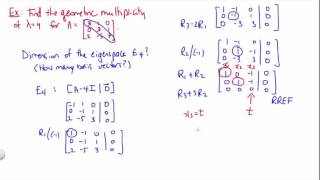 Ex: Find the geometric multiplicity
of λ=4 for A=
Dimension of the eigenspace E₄?
(How many basis vectors?)
E₄: [A-4I | 0]
[-1 1 0 | 0]
[0 -1 1 | 0]
[2 -5 3 | 0]
R₁/(-1) [1 -1 0 | 0]
[0 -1 1 | 0]
[2 -5 3 | 0]
R₃-2R₁ [1 -1 0 | 0]
[0 -1 1 | 0]
[0 -3 3 | 0]
R₂/(-1) [1 -1 0 | 0]
[0 1 -1 | 0]
[0 -3 3 | 0]
x₁ x₂ x₃
R₁+R₂ [1 0 -1 | 0]
R₃+3R₂ [0 1 -1 | 0]
[0 0 0 | 0]
RREF
x₃=t
t